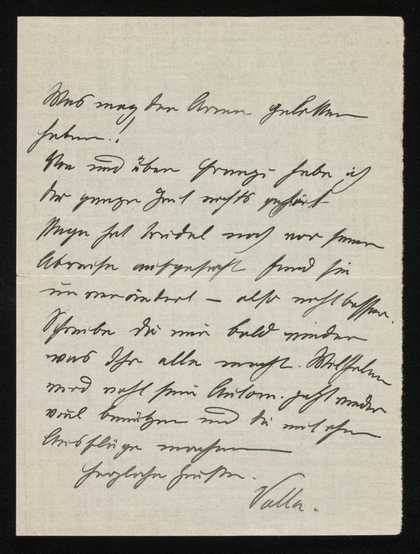 Was mag der Arme gelitten
haben!
Von und über Franzi habe ich
die ganze Zeit nichts gehört
hat Friedel noch vor seiner
Abreise aufgesucht fand sie
unverändert – also nicht besser.
Schreibe du mir bald wieder
was Ihr alle macht. Wilhelm
wird wohl sein Autom. jetzt wieder
viel benützen und du mit ihm
Ausflüge machen
Herzliche Grüße.